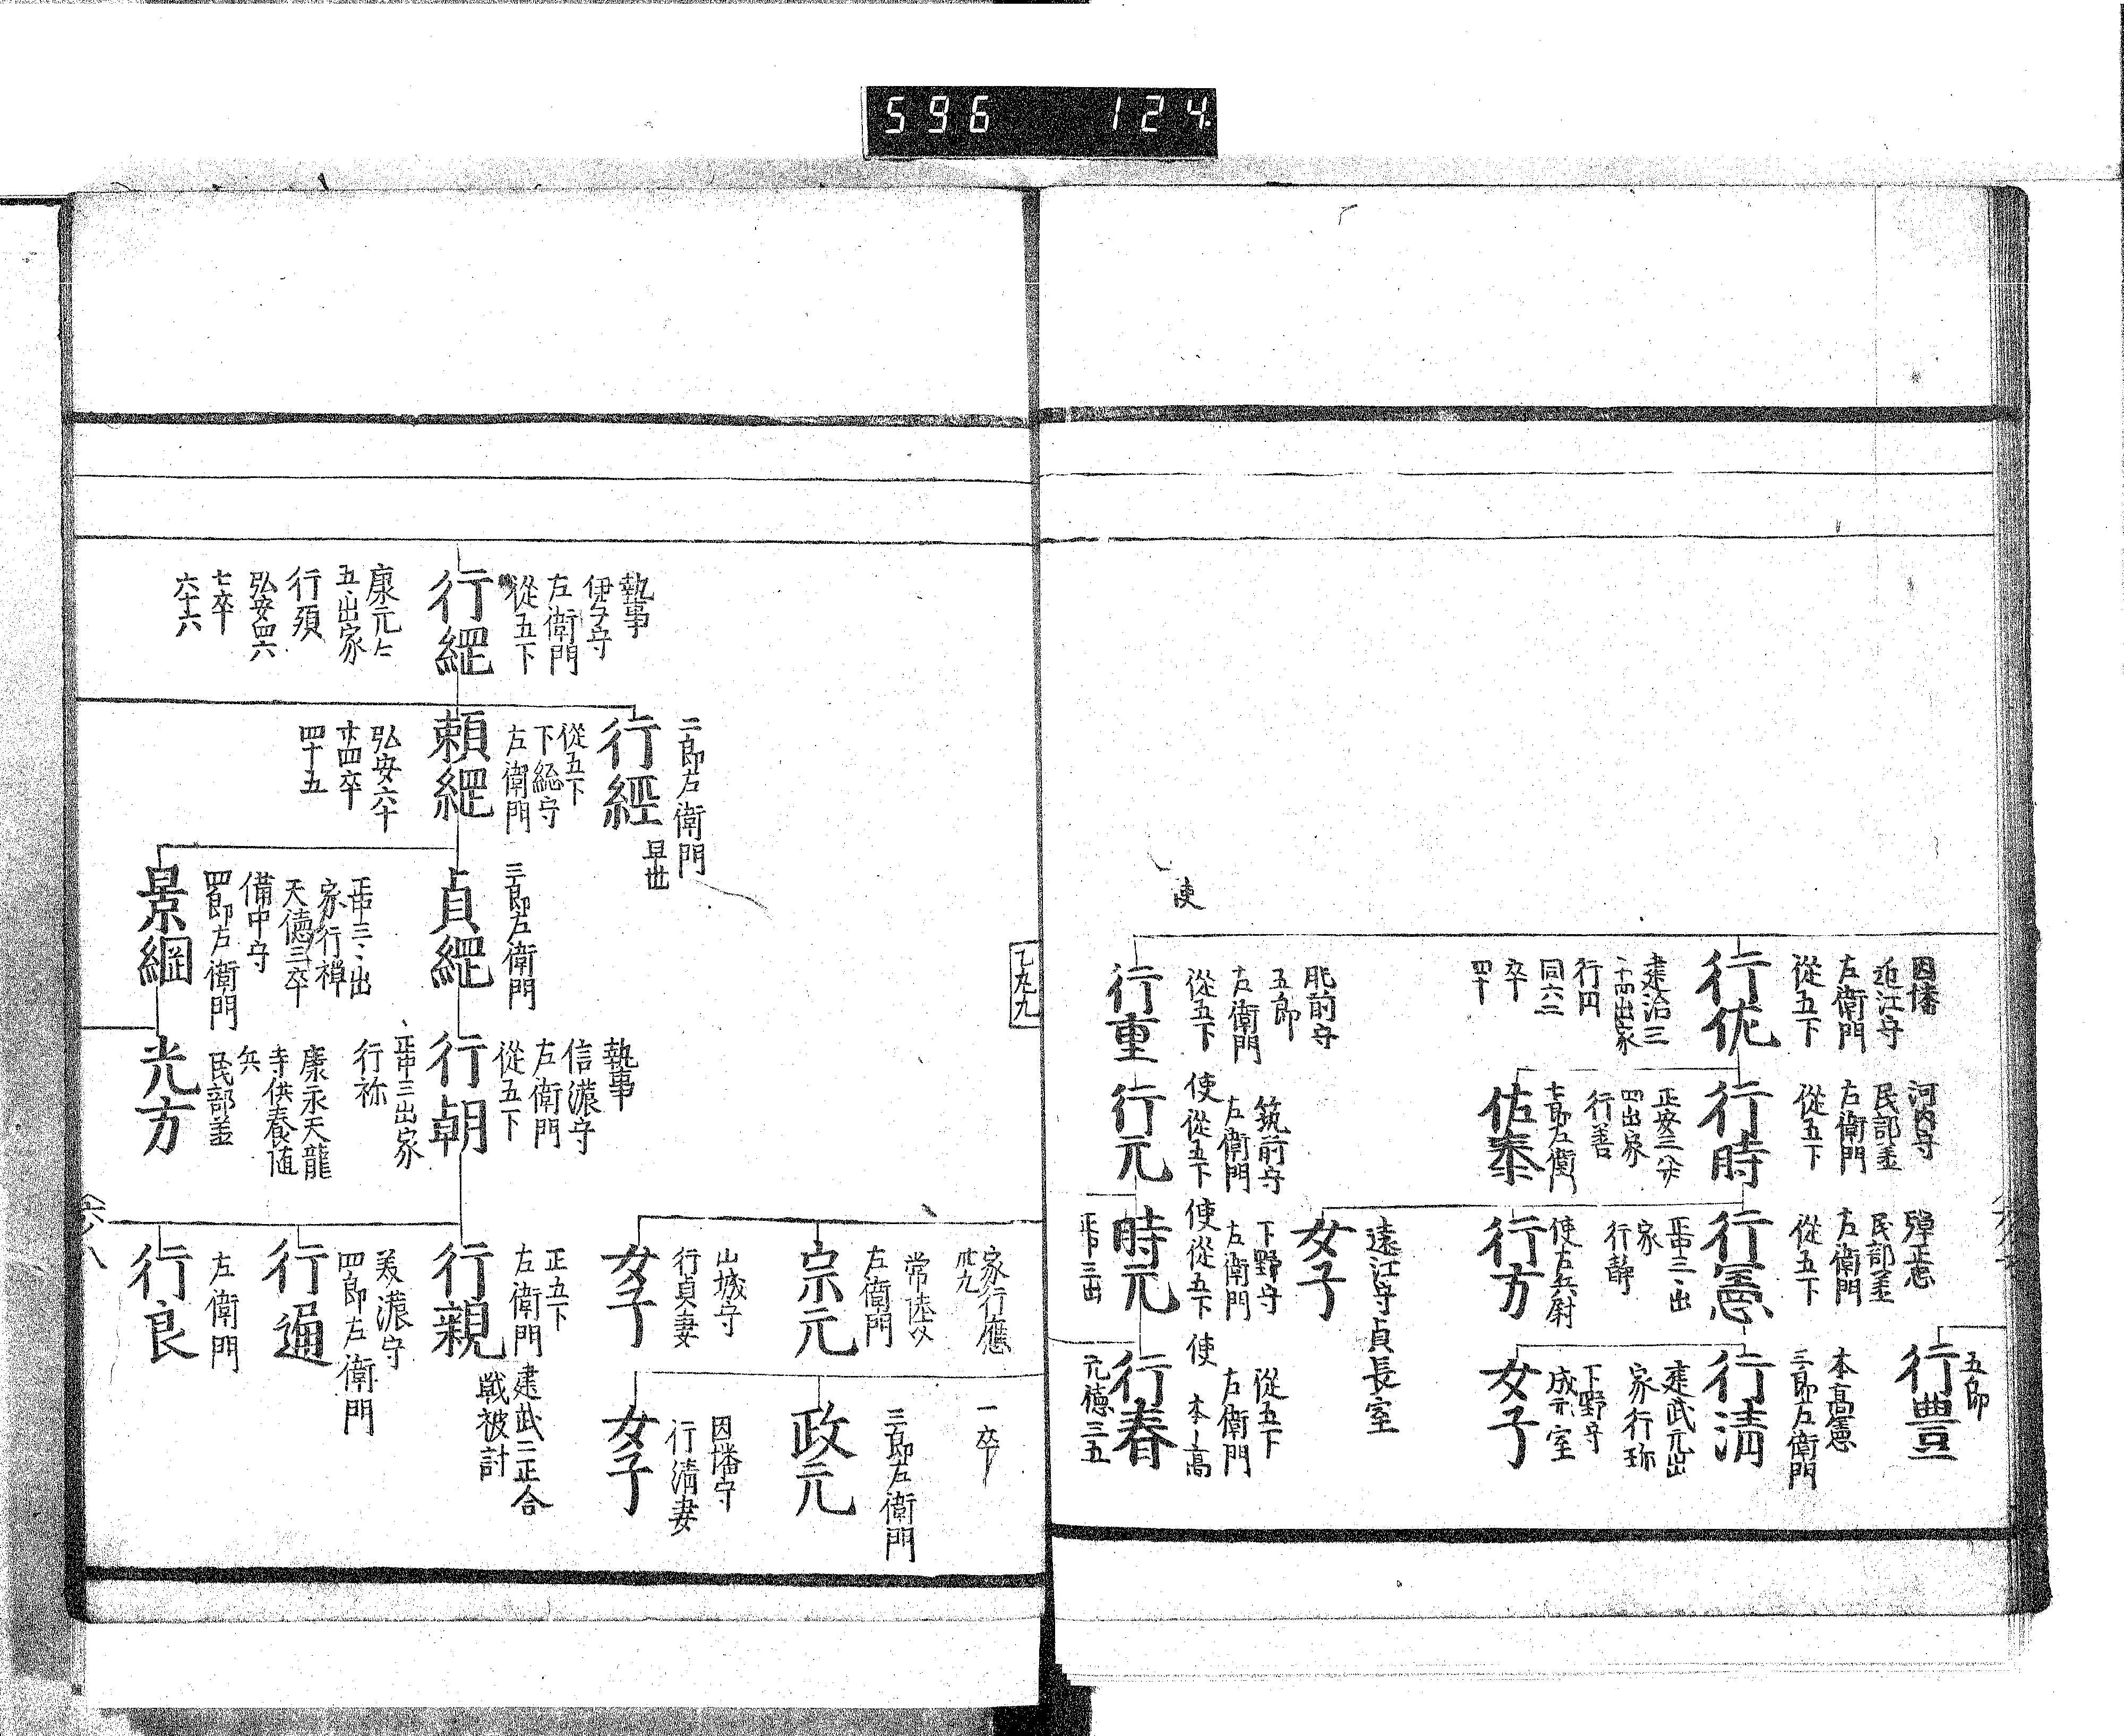 596 124
因幡
近江守
左衛門
從五下
行佐
建治三
十二四出家
行円
同六二
卒
四十
河内守
民部丞
左衛門
從五下
行時
正安三八廿
四出家
行善
七郎左衛門
佐泰
彈正忠
民部丞
左衛門
從五下
行憲
正中三、出
家
行静
使左兵尉
行方
遠江守貞長室
女子
五郎
行豊
本高憲
三郎左衛門
行淸
建武元出
家行珎
下野守
成元室
女子
使
肥前守
五郎
左衛門
從五下
行重
筑前守
左衛門
使從五下
行元
下野守
左衛門
使從五下
時元
正中三出
從五下
左衛門
使 本高
行春
元德三五
乙九九
家行應
卅九
常陸介
左衛門
宗元
山城守
行貞妻
女子
一卒
三郎左衛門
政元
因幡守
行淸妻
女子
執事
伊与守
左衛門
從五下
行綱
康元七
五、出家
行願
弘安四六
七卒
六十六
二郎左衛門
早世
行經
從五下
下総守
左衛門
頼綱
弘安六十
廿四卒
四十五
三郎左衛門
貞綱
正中三、出
家行禅
天德三卒
備中守
四郎左衛門
景綱
執事
信濃守
左衛門
從五下
行朝
正中三出家
行祢
康永天龍
寺供養随
兵
民部丞
光方
正五下
左衛門
建武二正合
戦被討
行親
美濃守
四郎左衛門
行通
左衛門
行良